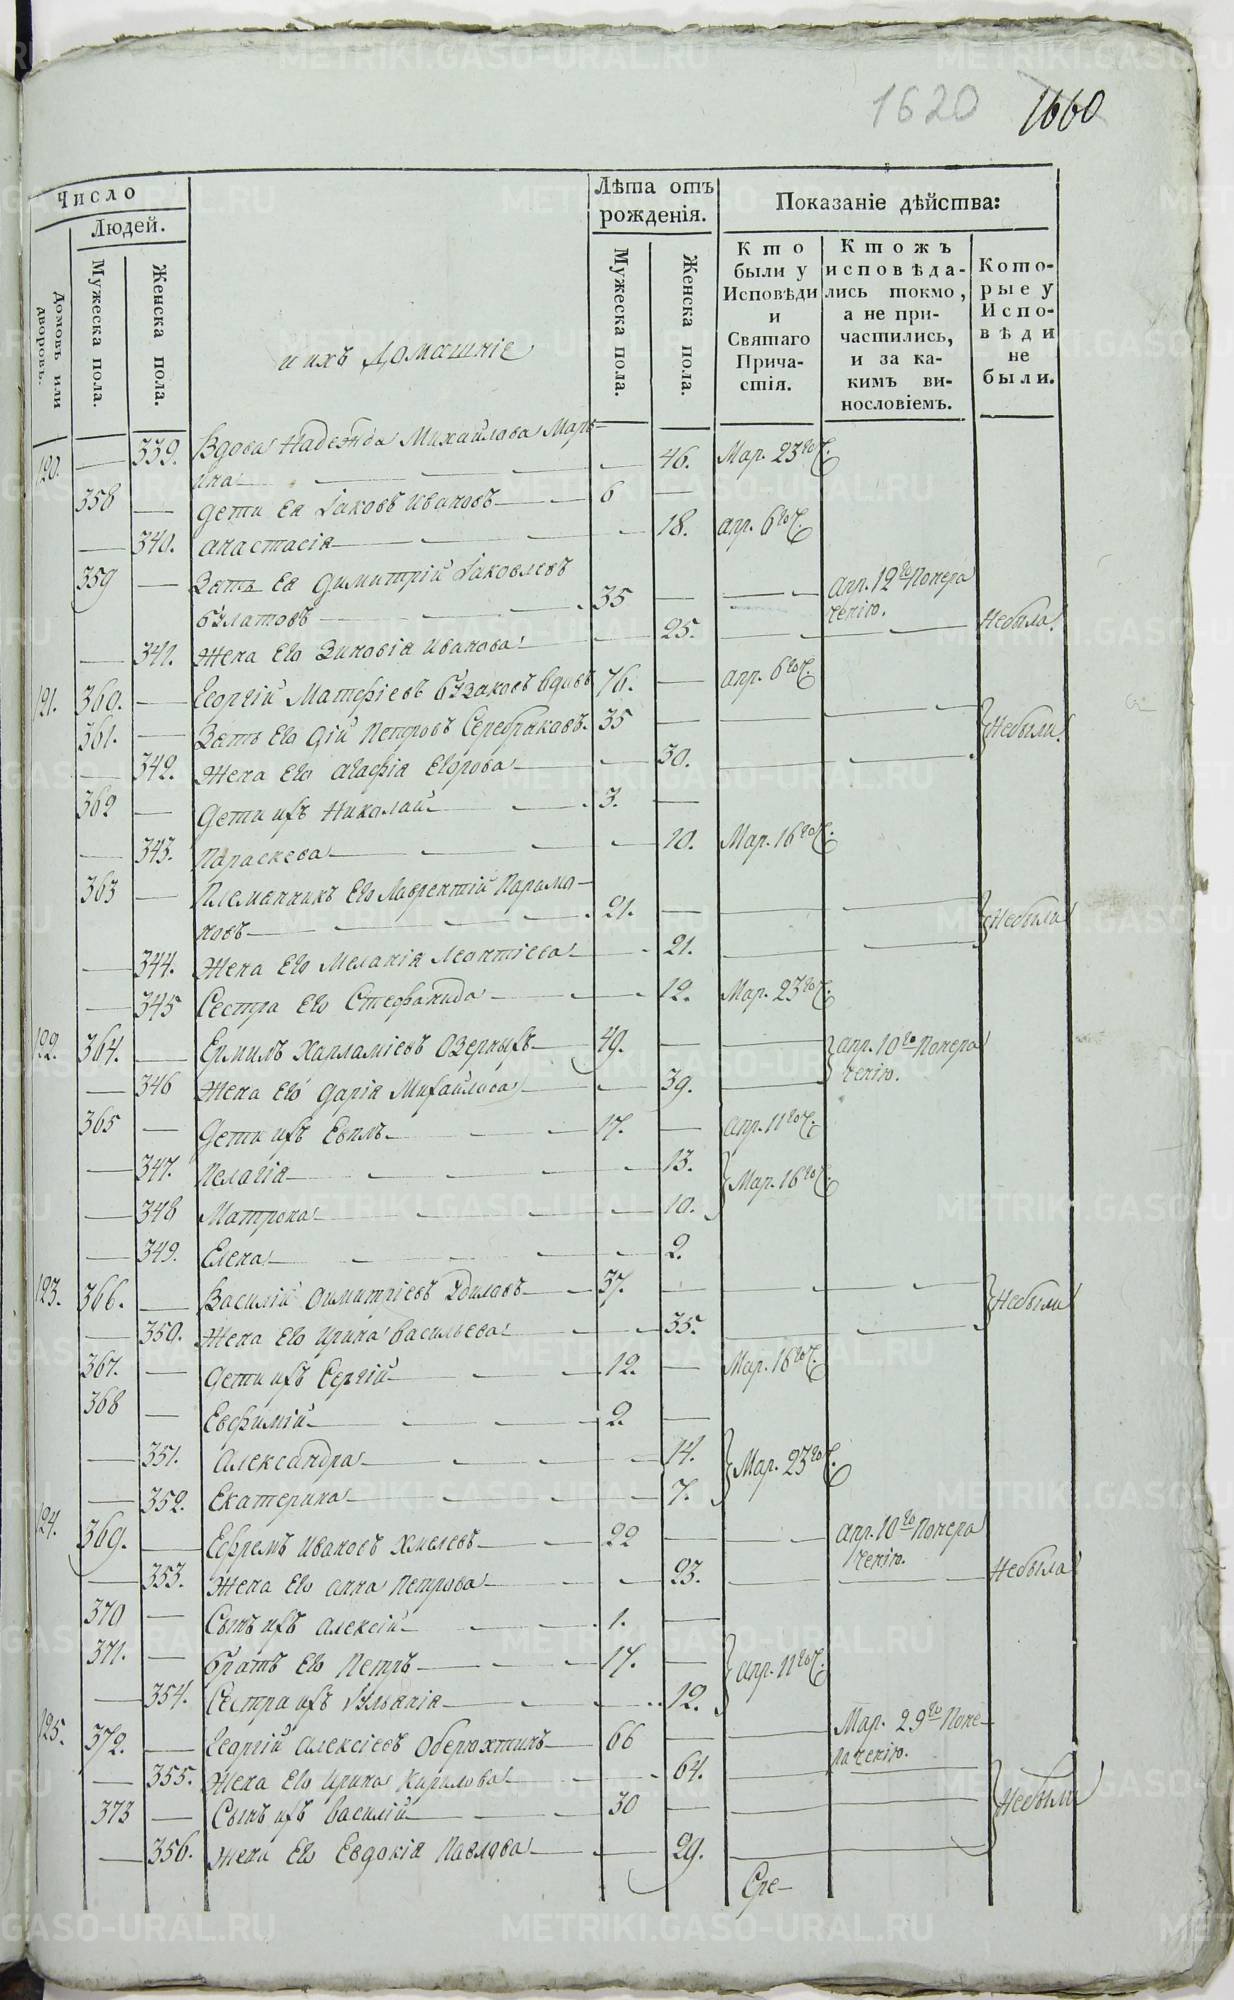 1620 1660
Число
Людей.
Домовъ или дворовъ.
Мужеска пола.
Женска пола.
и ихъ Домашніе
Лѣта отъ рожденія.
Мужеска пола.
Женска пола.
Показаніе дѣйства:
Кто были у Исповѣди и Святаго Причастія.
Ктожъ исповѣдались токмо, а не причастились, и за какимъ винословіемъ.
Которые у Исповѣди не были.
120. — 339. Вдова Надежда Михайлова Марь-
ина — 46. Мар. 23го ч.
358 — дети ея Іаковъ Ивановъ 6 —
— 340. Анастасія — 18. Апр. 6го ч.
359 — Зать ея Димитрій Іаковлевъ
Булатовъ 35 — — Апр. 12го Понера
ченію.
— 341. Жена Его Зиновія Иванова — 25. — — Небыла.
121. 360. — Георгій Матфіевъ Бузаковъ вдовъ 76. — Апр. 6го ч.
361. — Зать Его Дій Петровъ Серебраковъ 35 — — — Небыли.
— 342. Жена Его Агафія Егорова — 30. — —
362 — Дети ихъ Николай 3. —
— 343. Параскева — 10. Мар. 16го ч.
363 — Племянникъ Его Лаврентій Парамо-
новъ 21. — — — Небыли
— 344. Жена Его Меланія Леонтіева — 21. — —
— 345 Сестра Его Стефанида — 12. Мар. 23го ч.
122. 364. — Ермилъ Харламіевъ Озерныхъ 49. — — Апр. 10го Понера
ченію.
— 346 Жена Его Дарія Михайлова — 39. —
365 — Дети ихъ Евилъ 17. — Апр. 11го ч.
— 347. Пелагія — 13. Мар. 16го ч.
— 348 Матрона — 10.
— 349. Елена — 2.
123. 366. — Василій Димитріевъ Удиловъ 37. — — — Небыли
— 350. Жена Его Ирина Васильева — 35. — —
367. — Дети ихъ Сергій 12. — Мар. 16го ч.
368 — Евфимій 2. —
— 351. Александра — 14. Мар. 23го ч.
— 352. Екатерина — 7.
124. 369. — Ефремъ Ивановъ Хмелевъ 22 — — Апр. 10го Понера
ченію.
— 353. Жена Его Анна Петрова — 23. — — Небыла
370 — Сынъ ихъ Алексій 1. —
371. — Братъ Его Петръ 17. — Апр. 11го ч.
— 354. Сестра ихъ Ульянія — 12.
125. 372. — Георгій Алексіевъ Оберюхтинъ 66 — — Мар. 29го Поне-
раченію.
— 355. Жена Его Ирина Карилова — 64. — — Небыли
373 — Сынъ ихъ Василій 30 — — —
— 356. Жена Его Евдокія Павлова — 29. — —
Сре-
METRIKI.GASO-URAL.RU